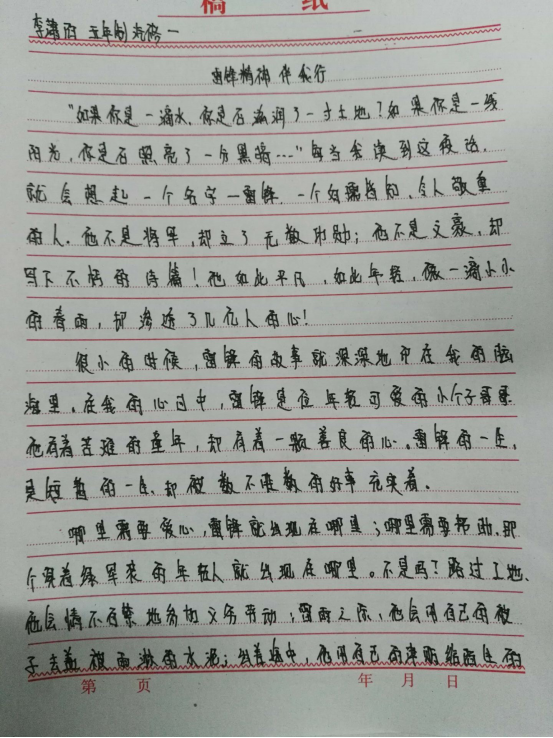 稿 纸
李 五年制汽修一
雷锋精神伴我行
"如果你是一滴水,你是否滋润了一寸土地?如果你是一线
阳光,你是否照亮了一分黑暗…"每当我读到这段话,
就会想起一个名字—雷锋,一个名 ,令人敬重
的人.他不是将军,却立了无数功勋;他不是文豪,却
写下不朽的诗篇!他如此平凡,如此年轻,像一滴小小
的春雨,却渗透了几亿人的心!
很小的时候,雷锋的故事就深深地印在我的脑
海里.在我的心目中,雷锋是位年轻可爱的小个子哥哥
他有着苦难的童年,却有着一颗善良的心.雷锋的一生,
是短暂的一生,却被数不清数的好事充实着.
哪里需要爱心,雷锋就出现在哪里;哪里需要帮助,那
个穿着绿军装的年轻人就出现在哪里。不是吗?路过工地,
他会情不自禁地参加义务劳动;雷雨之际,他会用自己的被
子去盖被雨淋的水泥;出差途中,他用自己的
第 页 年 月 日